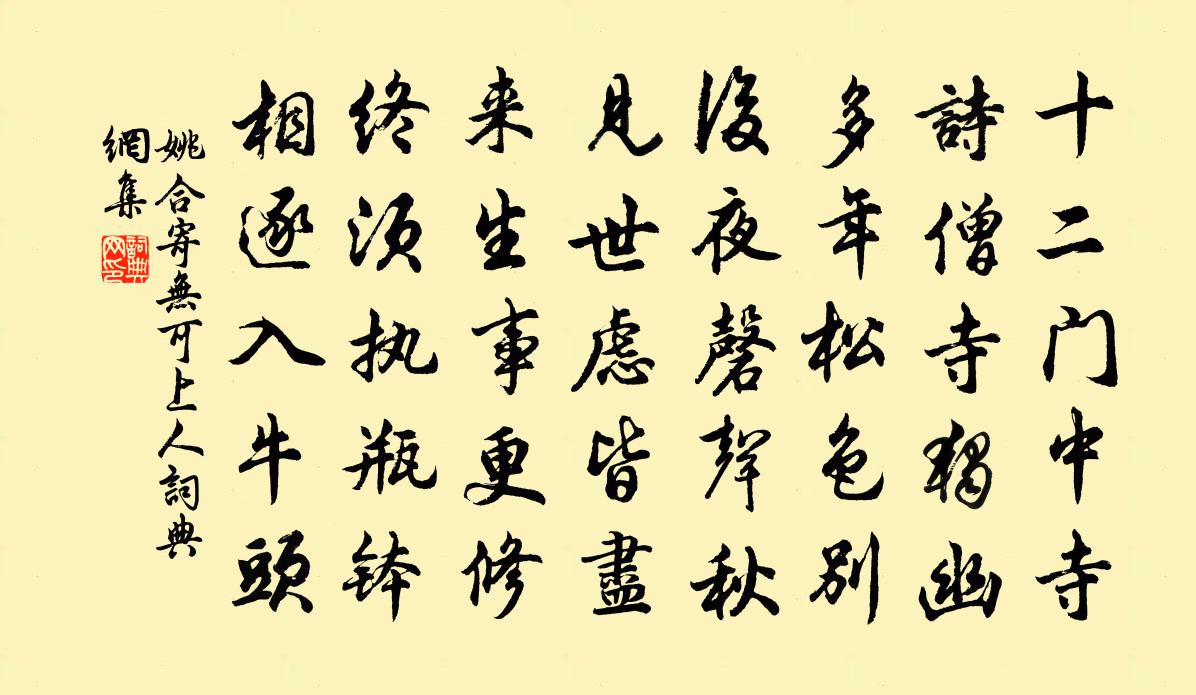 十二门中寺
詩僧寺獨幽
多年松色別
後夜磬聲秋
見世慮皆盡
来生事更修
终须执瓶钵
相逐入牛頭
姚合寄無可上人詞典
網集
詞典
网印